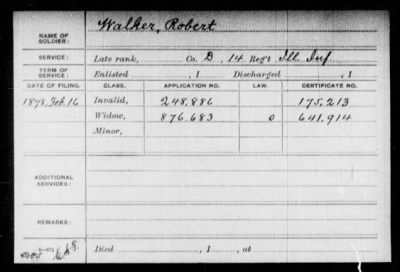 Walker, Robert
NAME OF SOLDIER:
SERVICE: Late rank, Co. D, 14. Reg't Ill. Inf.
TERM OF SERVICE: Enlisted , 1 Discharged , 1
DATE OF FILING. CLASS. APPLICATION NO. LAW. CERTIFICATE NO.
1878, Feb. 16 Invalid, 248.886 175.213
Widow, 876.683 0 641.914
Minor,
ADDITIONAL SERVICES:
REMARKS:
Died , 1 , at